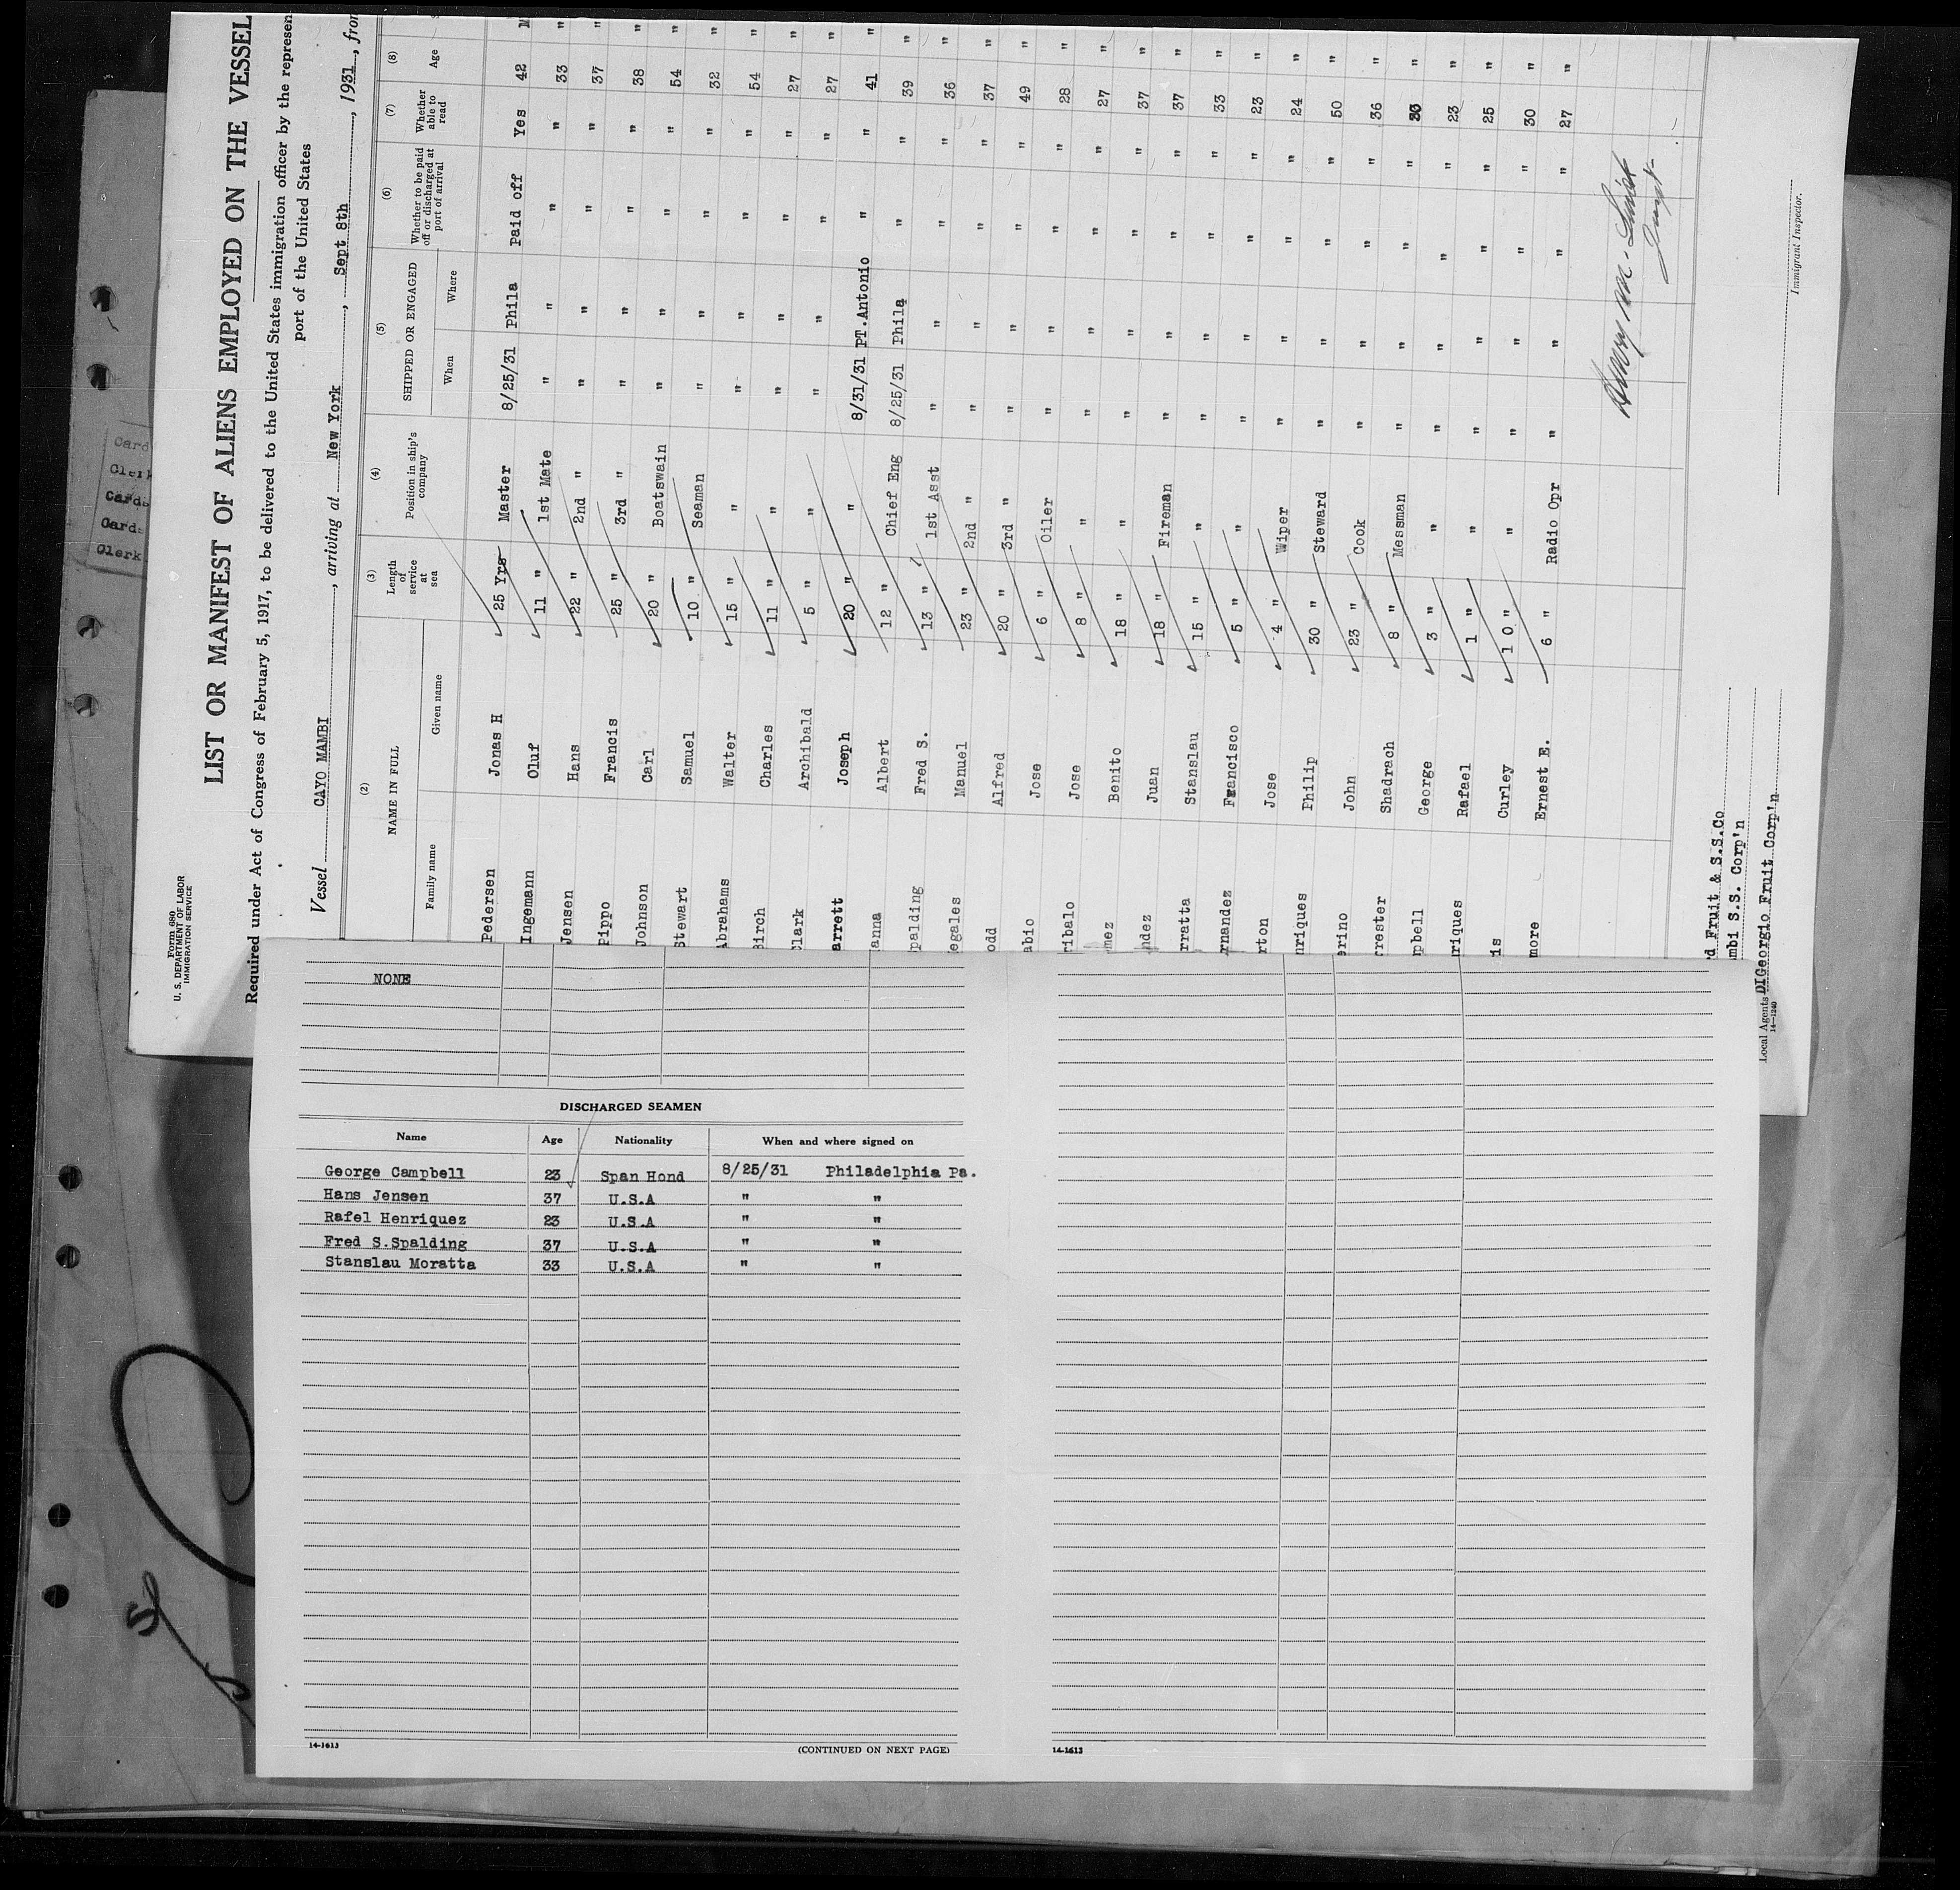 Form 680
U. S. DEPARTMENT OF LABOR
IMMIGRATION SERVICE
LIST OR MANIFEST OF ALIENS EMPLOYED ON THE VESSEL
Required under Act of Congress of February 5, 1917, to be delivered to the United States immigration officer by the represen
port of the United States
Vessel CAYO MAMBI, arriving at New York, Sept 8th, 1931, from
(2) (3) (4) (5) (6) (7) (8)
NAME IN FULL Length of service at sea Position in ship's company SHIPPED OR ENGAGED Whether to be paid off or discharged at port of arrival Whether able to read Age
Family name Given name When Where
Pedersen Jonas H 25 Yrs Master 8/25/31 Phila Paid off Yes 42 M
Ingemann Oluf 11 " 1st Mate " " " " 33 "
Jensen Hans 22 " 2nd " " " " " 37 "
Pippo Francis 25 " 3rd " " " " " 38 "
Johnson Carl 20 " Boatswain " " " " 54 "
Stewart Samuel 10 " Seaman " " " " 32 "
Abrahams Walter 15 " " " " " " 54 "
Birch Charles 11 " " " " " " 27 "
Clark Archibald 5 " " " " " " 27 "
arrett Joseph 20 " " 8/31/31 PT.Antonio " " 41 "
anna Albert 12 " Chief Eng 8/25/31 Phila " " 39 "
palding Fred S. 13 " 1st Asst " " " " 36 "
egales Manuel 23 " 2nd " " " " " 37 "
odd Alfred 20 " 3rd " " " " " 49 "
abio Jose 6 " Oiler " " " " 28 "
ribalo Jose 8 " " " " " " 27 "
mez Benito 18 " " " " " " 37 "
ndez Juan 18 " Fireman " " " " 37 "
rratta Stanslau 15 " " " " " " 33 "
rnandez Francisco 5 " " " " " " 23 "
rton Jose 4 " Wiper " " " " 24 "
nriques Philip 30 " Steward " " " " 50 "
erino John 23 " Cook " " " " 36 "
rrester Shadrach 8 " Messman " " " " 33 "
pbell George 3 " " " " " " 23 "
riques Rafael 1 " " " " " " 25 "
is Curley 10 " " " " " " 30 "
more Ernest E. 6 " Radio Opr " " " " 27 "
d Fruit & S.S.Co
mbi S.S. Corp'n
Local Agents DIGeorgio Fruit Corp'n
14-1240
Immigrant Inspector.
Card
Clerk
Cards
Cards
Clerk
NONE
DISCHARGED SEAMEN
Name Age Nationality When and where signed on
George Campbell 23 Span Hond 8/25/31 Philadelphia Pa.
Hans Jensen 37 U.S.A " "
Rafel Henriquez 23 U.S.A " "
Fred S.Spalding 37 U.S.A " "
Stanslau Moratta 33 U.S.A " "
14-1613 (CONTINUED ON NEXT PAGE) 14-1613